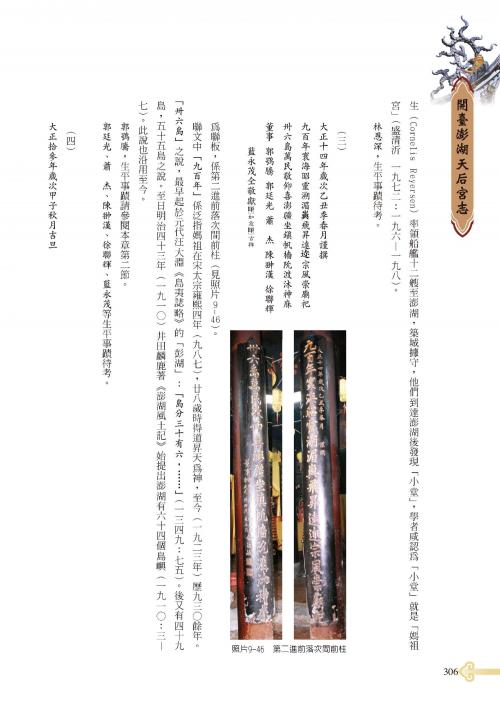 開臺澎湖天后宮志
生（Cornelis Reyersen）率領船艦十二艘至澎湖，築城據守，他們到達澎湖後發現「小堂」，學者咸認為「小堂」就是「媽祖
宮」（盛清沂　一九七二：一九六－一九八）。
林恩深，生平事蹟待考。
（三）
大正十四年歲次乙丑季春月謹撰
九百年寰海昭靈溯湄島飛昇遠迩宗風崇廟祀
卅六島萬民敬仰喜澎疆坐鎮帆檣阮渡沐神庥
董事　郭鶚騰　郭廷光　蕭　杰　陳翀漢　徐聯輝
藍永茂仝敬獻
為聯板，係第二進前落次間前柱（見照片9-46）。
聯文中「九百年」係泛指媽祖在宋太宗雍熙四年（九八七），廿八歲時得道昇天為神，至今（一九二三年）歷九三〇餘年。
「卅六島」之說，最早起於元代汪大淵《島夷誌略》的「彭湖」：「島分三十有六，……」（一三四九：七五）。後又有四十九
島，五十五島之說。至日明治四十三年（一九一〇）井田麟鹿著《澎湖風土記》始提出澎湖有六十四個島嶼（一九一〇：三－
七）。此說也沿用至今。
郭鶚騰，生平事蹟請參閱本章第二節。
郭廷光、蕭　杰、陳翀漢、徐聯輝、藍永茂等生平事蹟待考。
（四）
大正拾參年歲次甲子秋月吉旦
照片9-46　第二進前落次間前柱
306